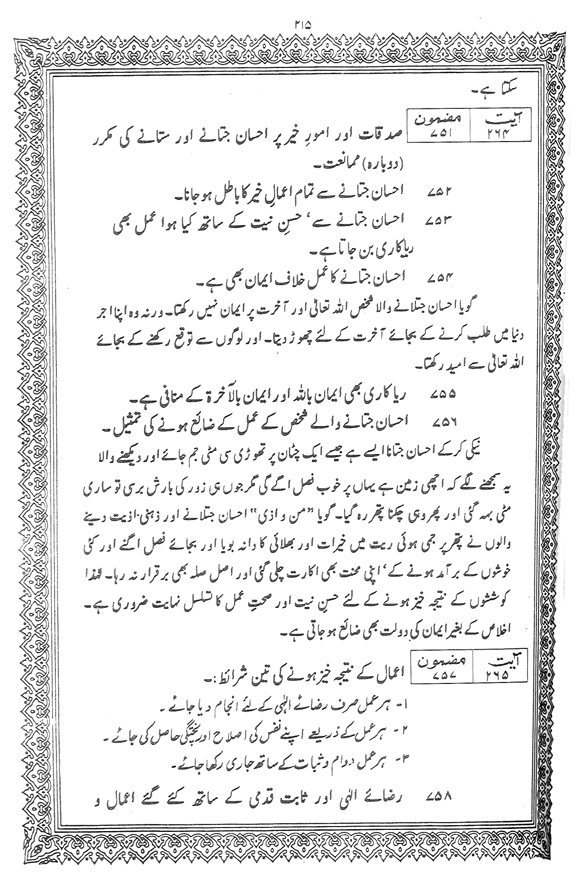 ۲۱۵
سکتا ہے۔
آیت ۲۶۴ مضمون ۷۵۱ صدقات اور امورِ خیر پر احسان جتانے اور ستانے کی مکرر
(دوبارہ) ممانعت۔
۷۵۲ احسان جتانے سے تمام اعمالِ خیر کا باطل ہو جانا۔
۷۵۳ احسان جتانے سے‘ حسنِ نیت کے ساتھ کیا ہوا عمل بھی
ریاکاری بن جاتا ہے۔
۷۵۴ احسان جتانے کا عمل خلاف ایمان بھی ہے۔
گویا احسان جتلانے والا شخص اللہ تعالیٰ اور آخرت پر ایمان نہیں رکھتا۔ ورنہ وہ اپنا اجر
دنیا میں طلب کرنے کے بجائے آخرت کے لئے چھوڑ دیتا۔ اور لوگوں سے توقع رکھنے کے بجائے
اللہ تعالیٰ سے امید رکھتا۔
۷۵۵ ریاکاری بھی ایمان باللہ اور ایمان بالآخرۃ کے منافی ہے۔
۷۵۶ احسان جتانے والے شخص کے عمل کے ضائع ہونے کی تمثیل۔
نیکی کر کے احسان جتانا ایسے ہے جیسے ایک چٹان پر تھوڑی سی مٹی جم جائے اور دیکھنے والا
یہ سمجھنے لگے کہ اچھی زمین ہے یہاں پر خوب فصل اگے گی مگر جوں ہی زور کی بارش برسی تو ساری
مٹی بہہ گئی اور پھر وہی چکنا پتھر رہ گیا۔ گویا ”من و اذی“ احسان جتلانے اور ذہنی اذیت دینے
والوں نے پتھر پر جمی ہوئی ریت میں خیرات اور بھلائی کا دانہ بویا اور بجائے فصل اگنے اور کئی
خوشوں کے برآمد ہونے کے‘ اپنی محنت بھی اکارت چلی گئی اور اصل صلہ بھی برقرار نہ رہا۔ لہٰذا
کوششوں کے نتیجہ خیز ہونے کے لئے حسنِ نیت اور صحتِ عمل کا تسلسل نہایت ضروری ہے۔
اخلاص کے بغیر ایمان کی دولت بھی ضائع ہو جاتی ہے۔
آیت ۲۶۵ مضمون ۷۵۷ اعمال کے نتیجہ خیز ہونے کی تین شرائط :۔
۱- ہر عمل صرف رضائے الٰہی کے لئے انجام دیا جائے۔
۲- ہر عمل کے ذریعے اپنے نفس کی اصلاح اور پختگی حاصل کی جائے۔
۳- ہر عمل دوام و ثبات کے ساتھ جاری رکھا جائے۔
۷۵۸ رضائے الٰہی اور ثابت قدمی کے ساتھ کئے گئے اعمال و